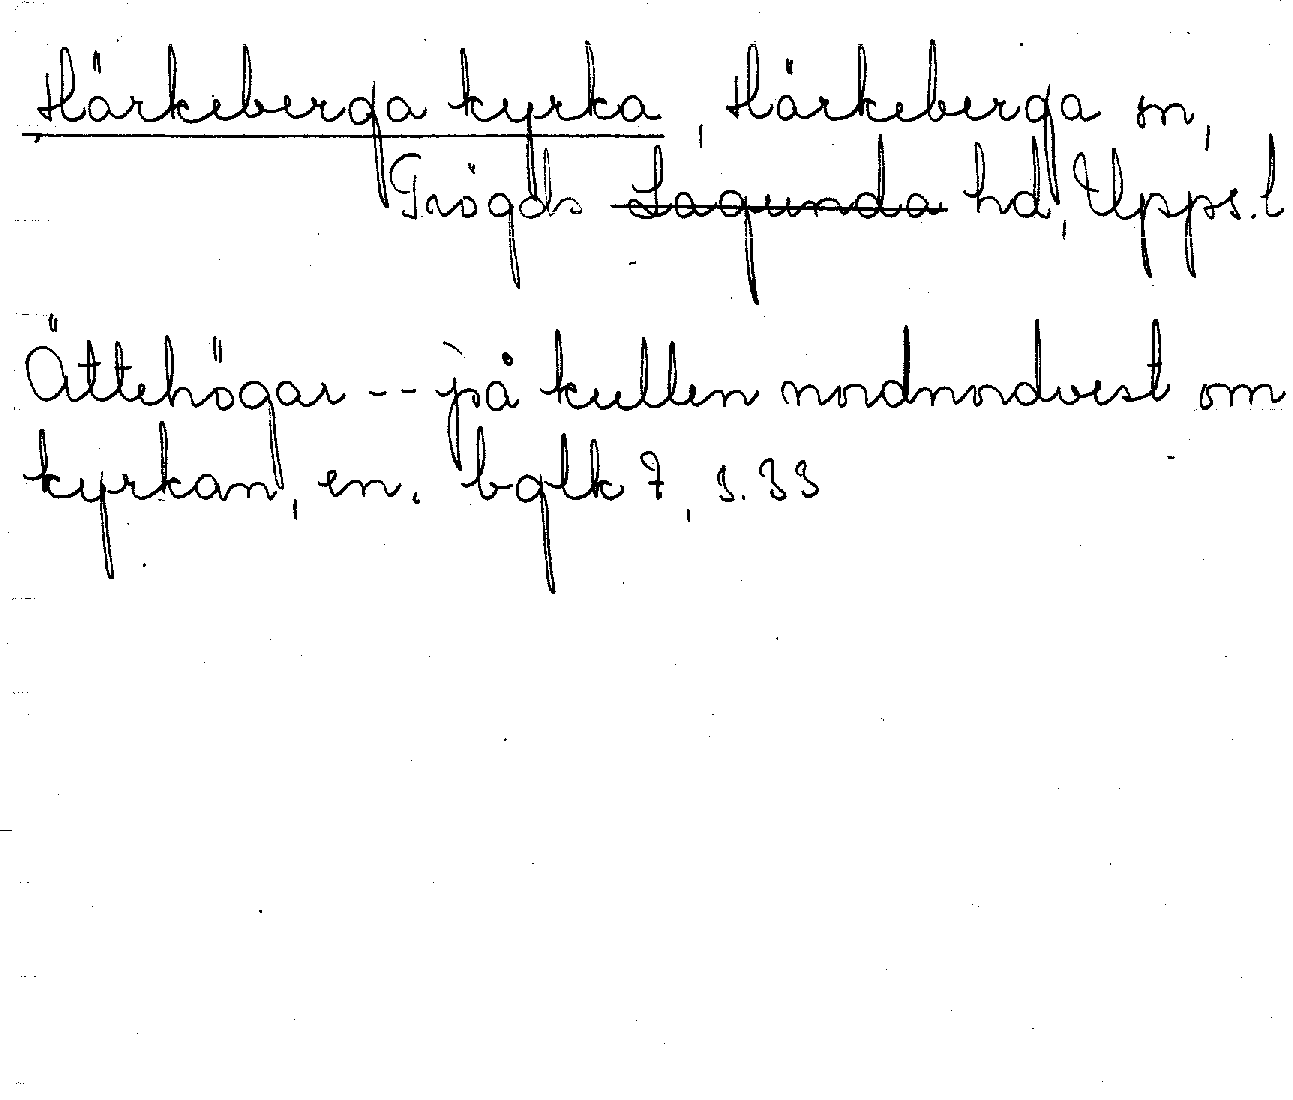 Härkeberga kyrka, Härkeberga sn,
Trögds Lagunda hd, Upps. l
Ättehögar -- på kullen nordnordvest om
kyrkan, en. bglk 7, s. 33